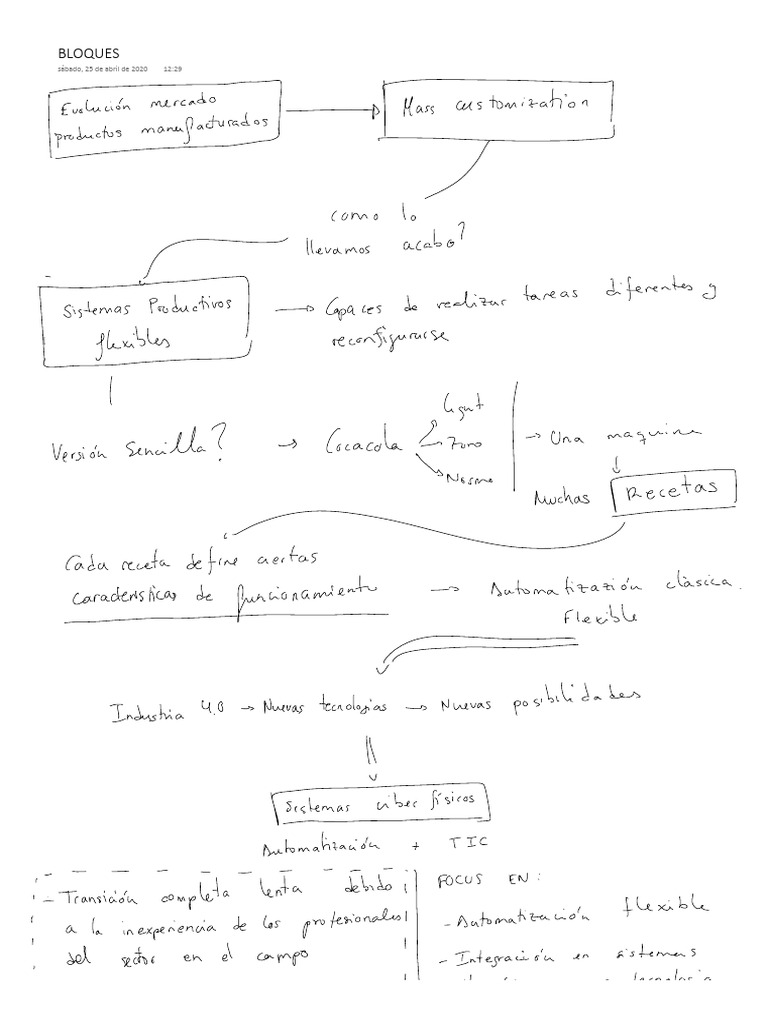 BLOQUES
sábado, 25 de abril de 2020 12:29
Evolución mercado
productos manufacturados
Mass customization
como lo
llevamos acabo?
Sistemas Productivos
flexibles
Capaces de realizar tareas diferentes y
reconfigurarse
Versión Sencilla?
Cocacola
Light
Zero
Norma
Una maquina
Muchas
Recetas
Cada receta define ciertas
características de funcionamiento
Automatización clásica
Flexible
Industria 4.0 → Nuevas tecnologías → Nuevas posibilidades
Sistemas ciber físicos
Automatización + TIC
- Transición completa lenta debido
a la inexperiencia de los profesionales
del sector en el campo
FOCUS EN:
- Automatización flexible
- Integración en sistemas